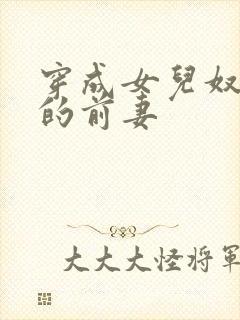 穿成女兒奴
的前妻
大大大怪將軍